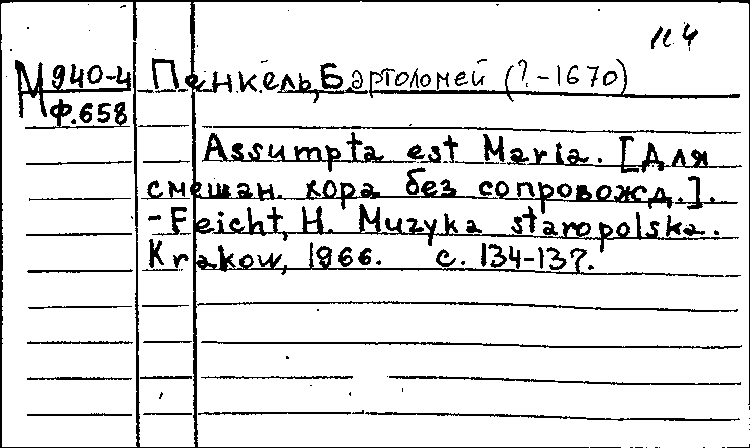 М 940-4 Пенкель, Бартоломей (?-1670)
Ф.658
Assumpta est Maria. [Для
смешан. хора без сопровожд.].
- Feicht, H. Muzyka staropolska.
Krakow, 1966. с. 134-137.